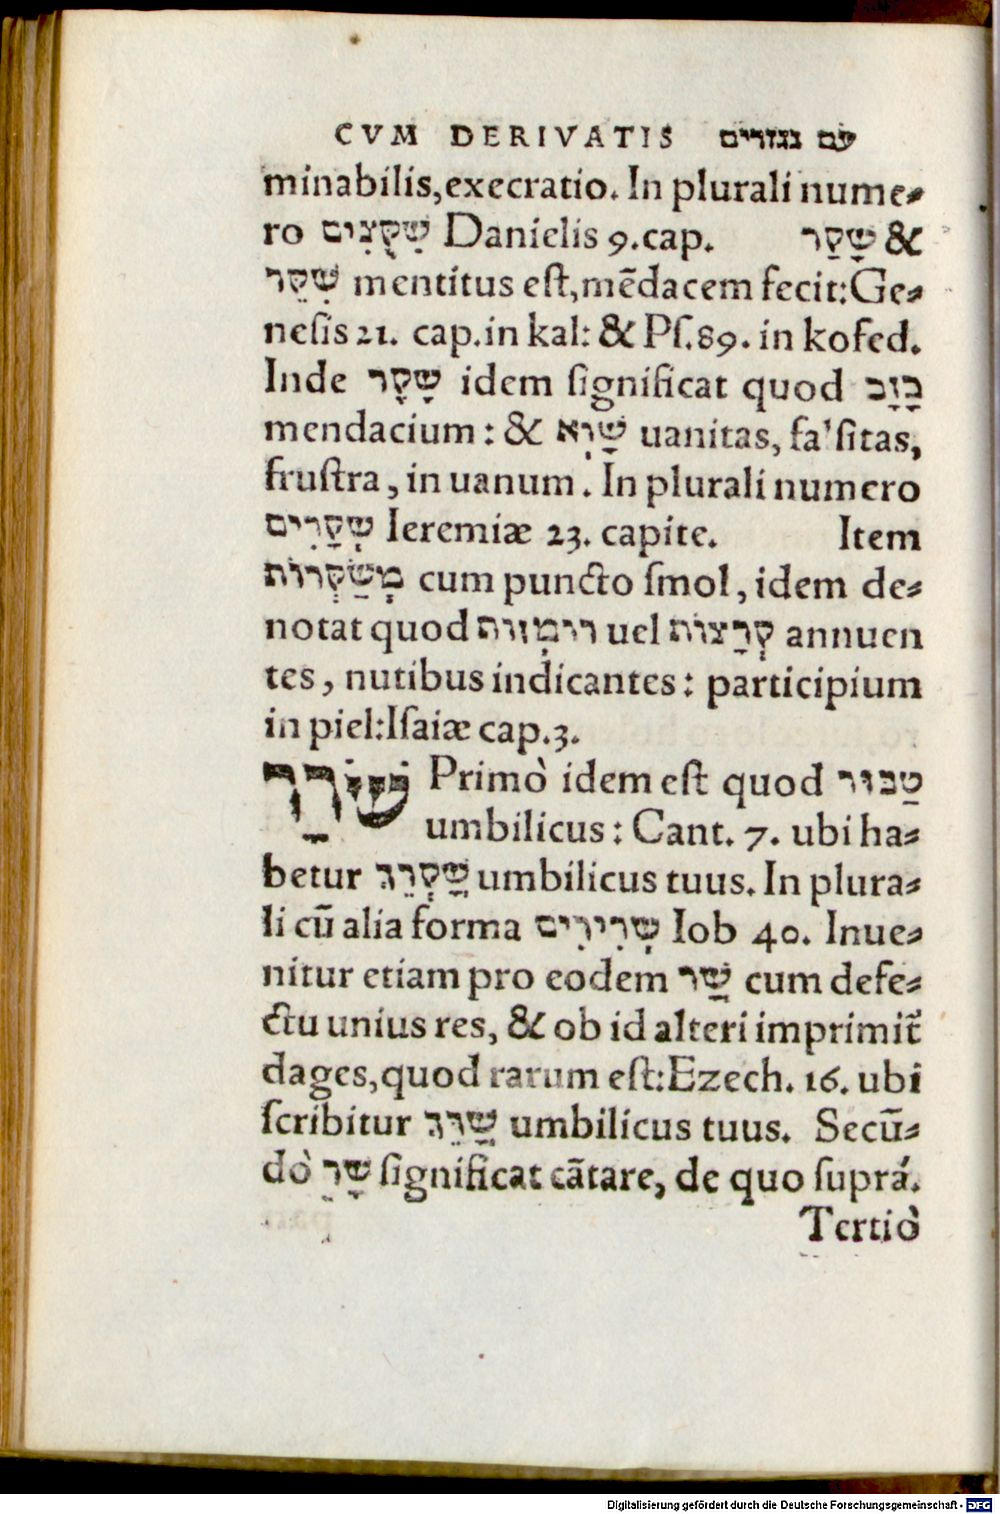 CVM DERIVATIS עם נגזרים
minabilis,execratio. In plurali nume⸗
ro שִׁקֻּצִים Danielis 9.cap. שָׁקַר &
שִׁקֵּר mentitus est,mēdacem fecit:Ge⸗
nesis 21. cap.in kal: & Ps.89. in kofed.
Inde שֶׁקֶר idem significat quod כָּזָב
mendacium: & שָׁוְא uanitas, falsitas,
frustra, in uanum. In plurali numero
שְׁקָרִים Ieremiæ 23. capite. Item
מְשַׂקְּרוֹת cum puncto smol, idem de⸗
notat quod רוֹמְזוֹת uel קְרַצוֹת annuen
tes, nutibus indicantes: participium
in piel:Isaiæ cap.3.
שׁרר Primò idem est quod טַבּוּר
umbilicus: Cant. 7. ubi ha⸗
betur שָׁרְרֵךְ umbilicus tuus. In plura⸗
li cū alia forma שְׁרִירִים Iob 40. Inue⸗
nitur etiam pro eodem שֹׁר cum defe⸗
ctu unius res, & ob id alteri imprimit̃
dages,quod rarum est:Ezech. 16. ubi
scribitur שָׁרֵּךְ umbilicus tuus. Secū⸗
dò שָׁר significat cātare, de quo suprá.
Tertiò
Digitalisierung gefördert durch die Deutsche Forschungsgemeinschaft - DFG